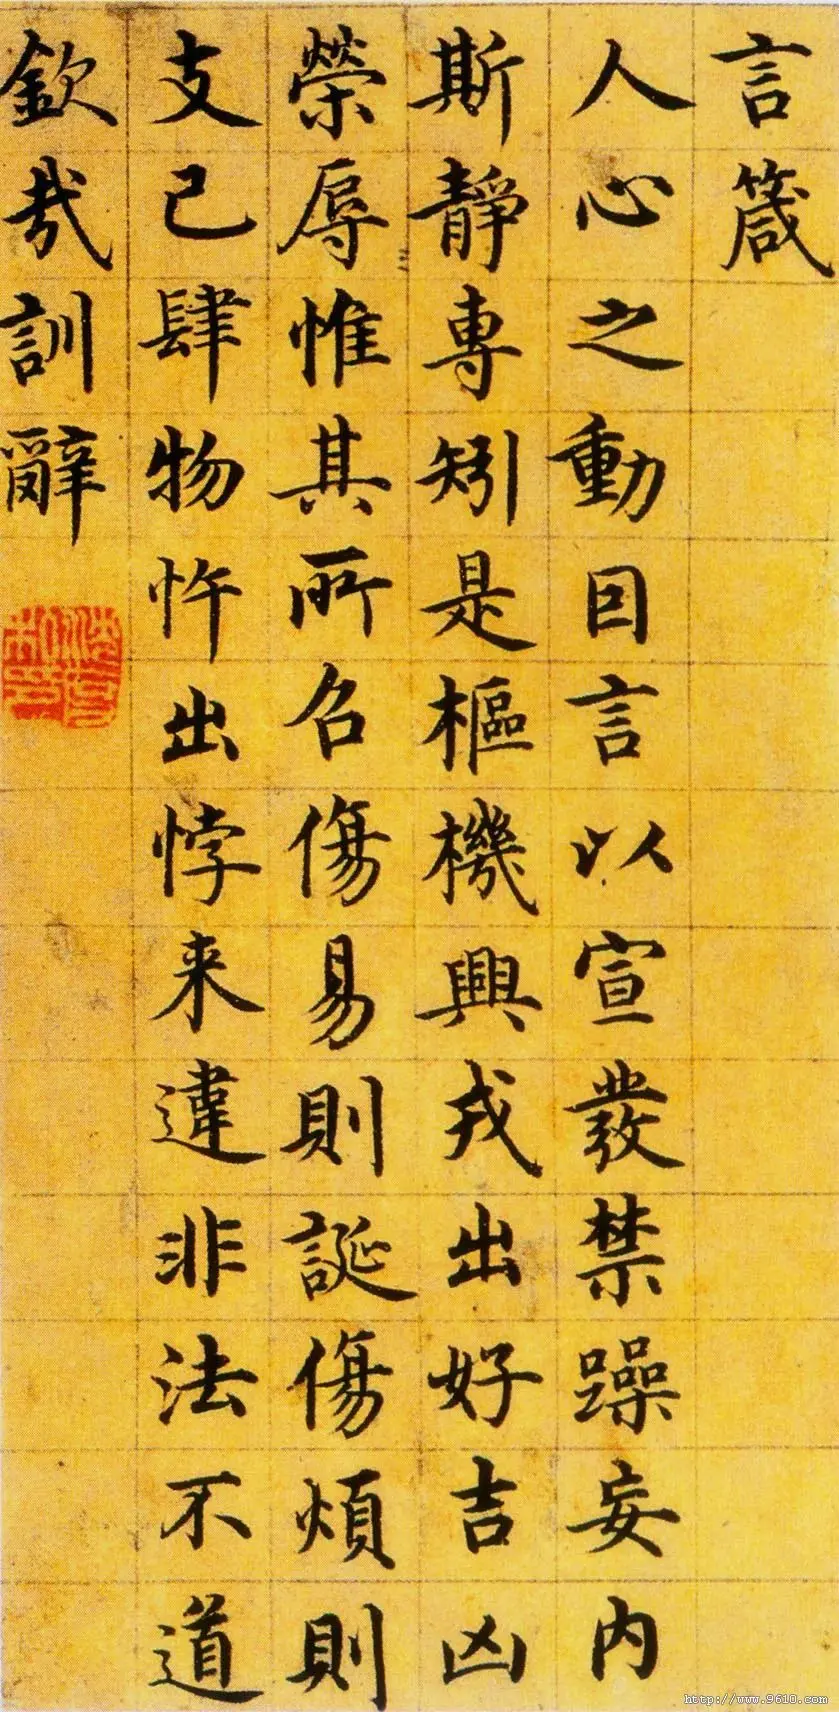 言箴
人心之動因言以宣發禁躁妄内
斯靜專矧是樞機興戎出好吉凶
榮辱惟其所召傷易則誕傷煩則
支己肆物忤出悖来違非法不道
欽哉訓辭
http://www.9610.com